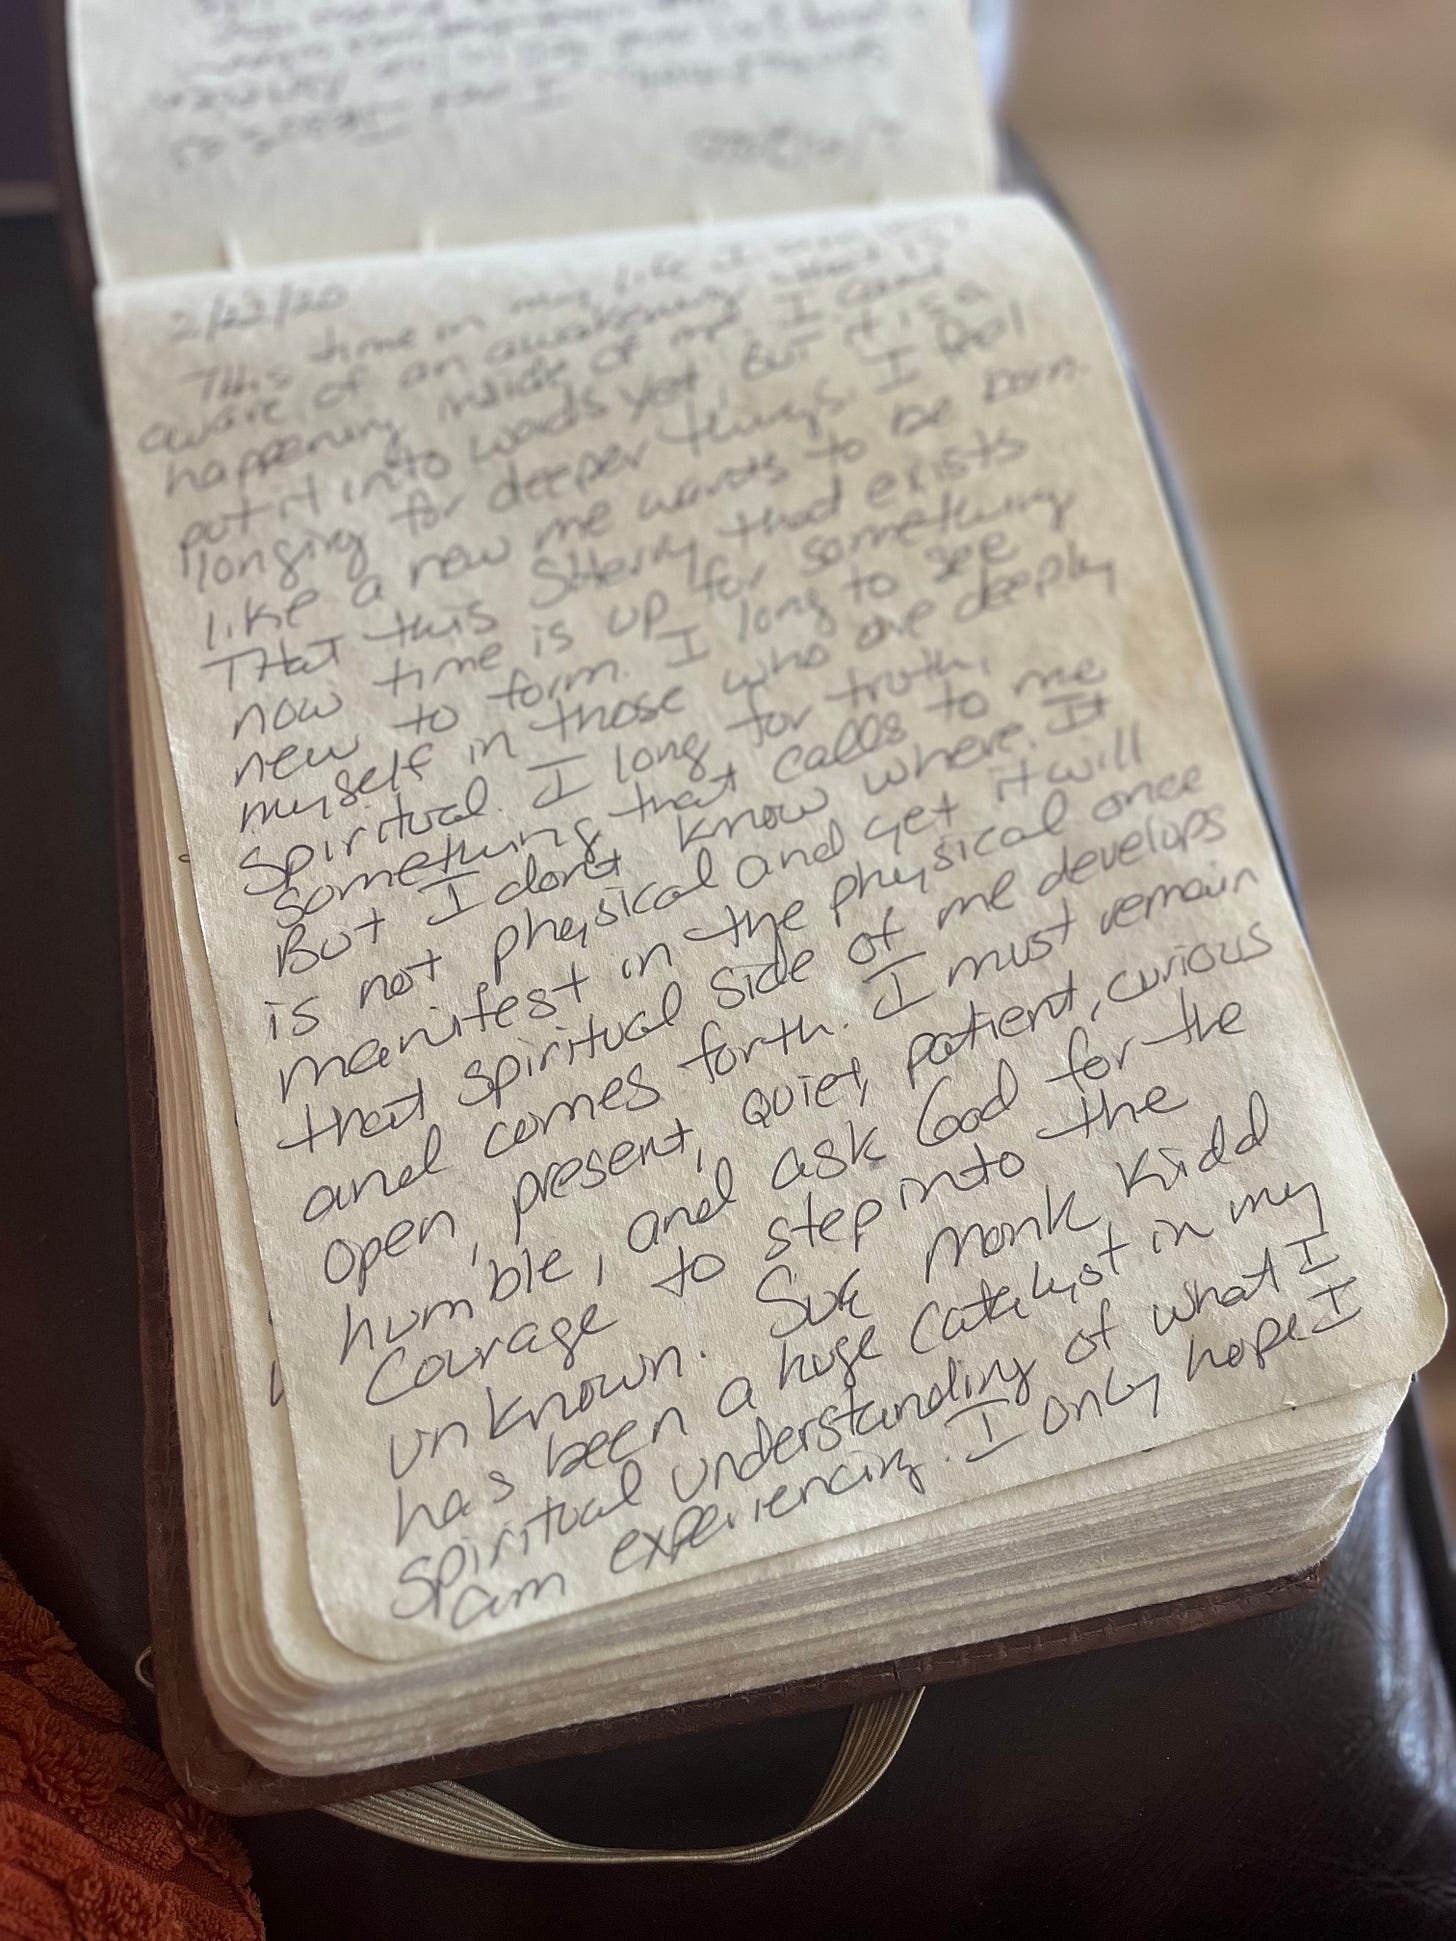 2/22/20
This time in my life I
aware of an awakening that is
happening inside of me. I cant
put it into words yet, But it is a
longing for deeper things. I feel
like a new me wants to be born.
That this Sherry that exists
now time is up for something
new to form. I long to see
myself in those who are deeply
spiritual. I long for truth,
something that calls to me
But I don't know where. It
is not physical and yet it will
manifest in the physical once
that spiritual side of me develops
and comes forth. I must remain
open, present, quiet, patient, curious
humble, and ask God for the
Courage to step into the
unknown. Sue Monk Kidd
has been a huge catalyst in my
spiritual understanding of what I
am experiencing. I only hope I